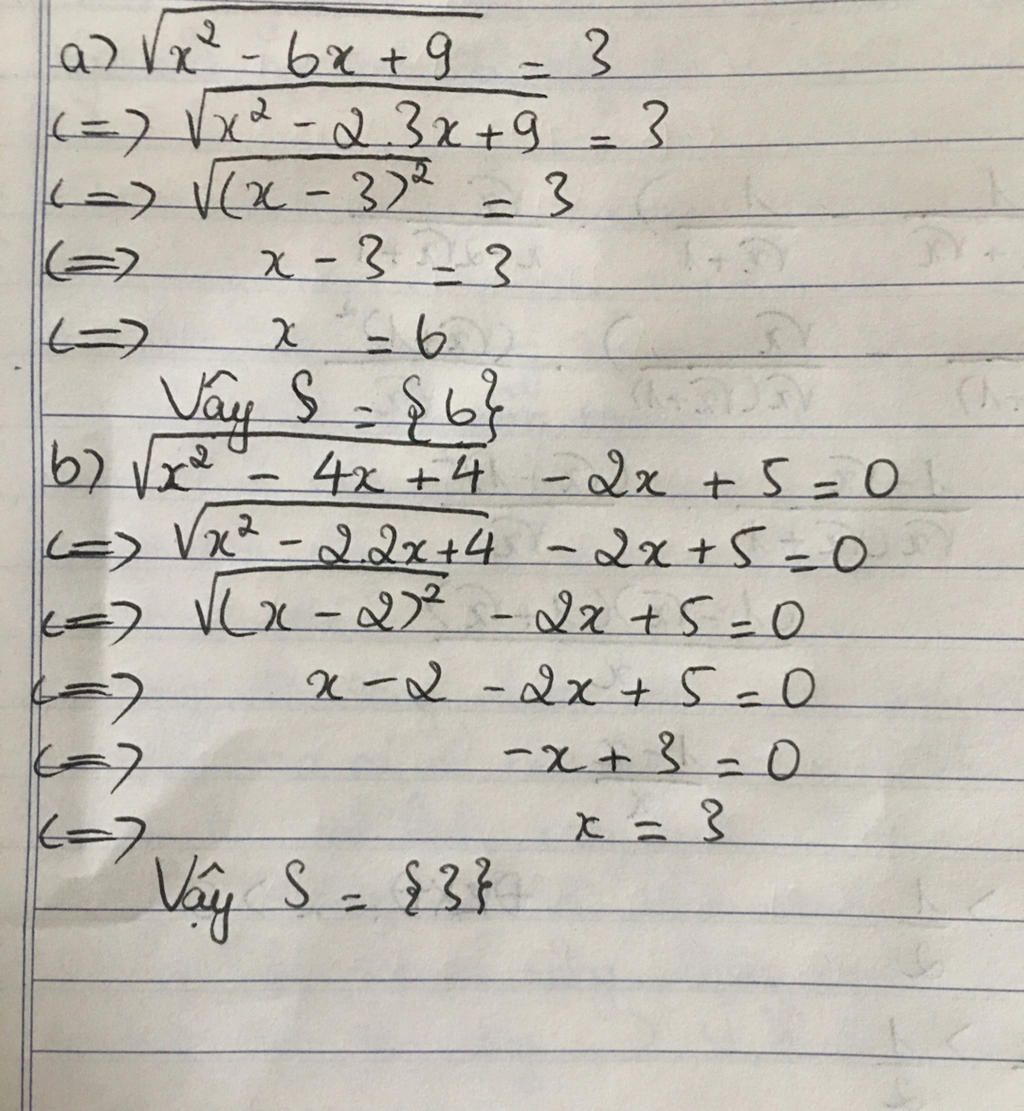 a) √x² - 6x + 9 = 3
<=> √x² - 2.3x + 9 = 3
<=> √(x - 3)² = 3
<=> x - 3 = 3
<=> x = 6
Vậy S = {6}
b) √x² - 4x + 4 - 2x + 5 = 0
<=> √x² - 2.2x + 4 - 2x + 5 = 0
<=> √(x - 2)² - 2x + 5 = 0
<=> x - 2 - 2x + 5 = 0
<=> -x + 3 = 0
<=> x = 3
Vậy S = {3}